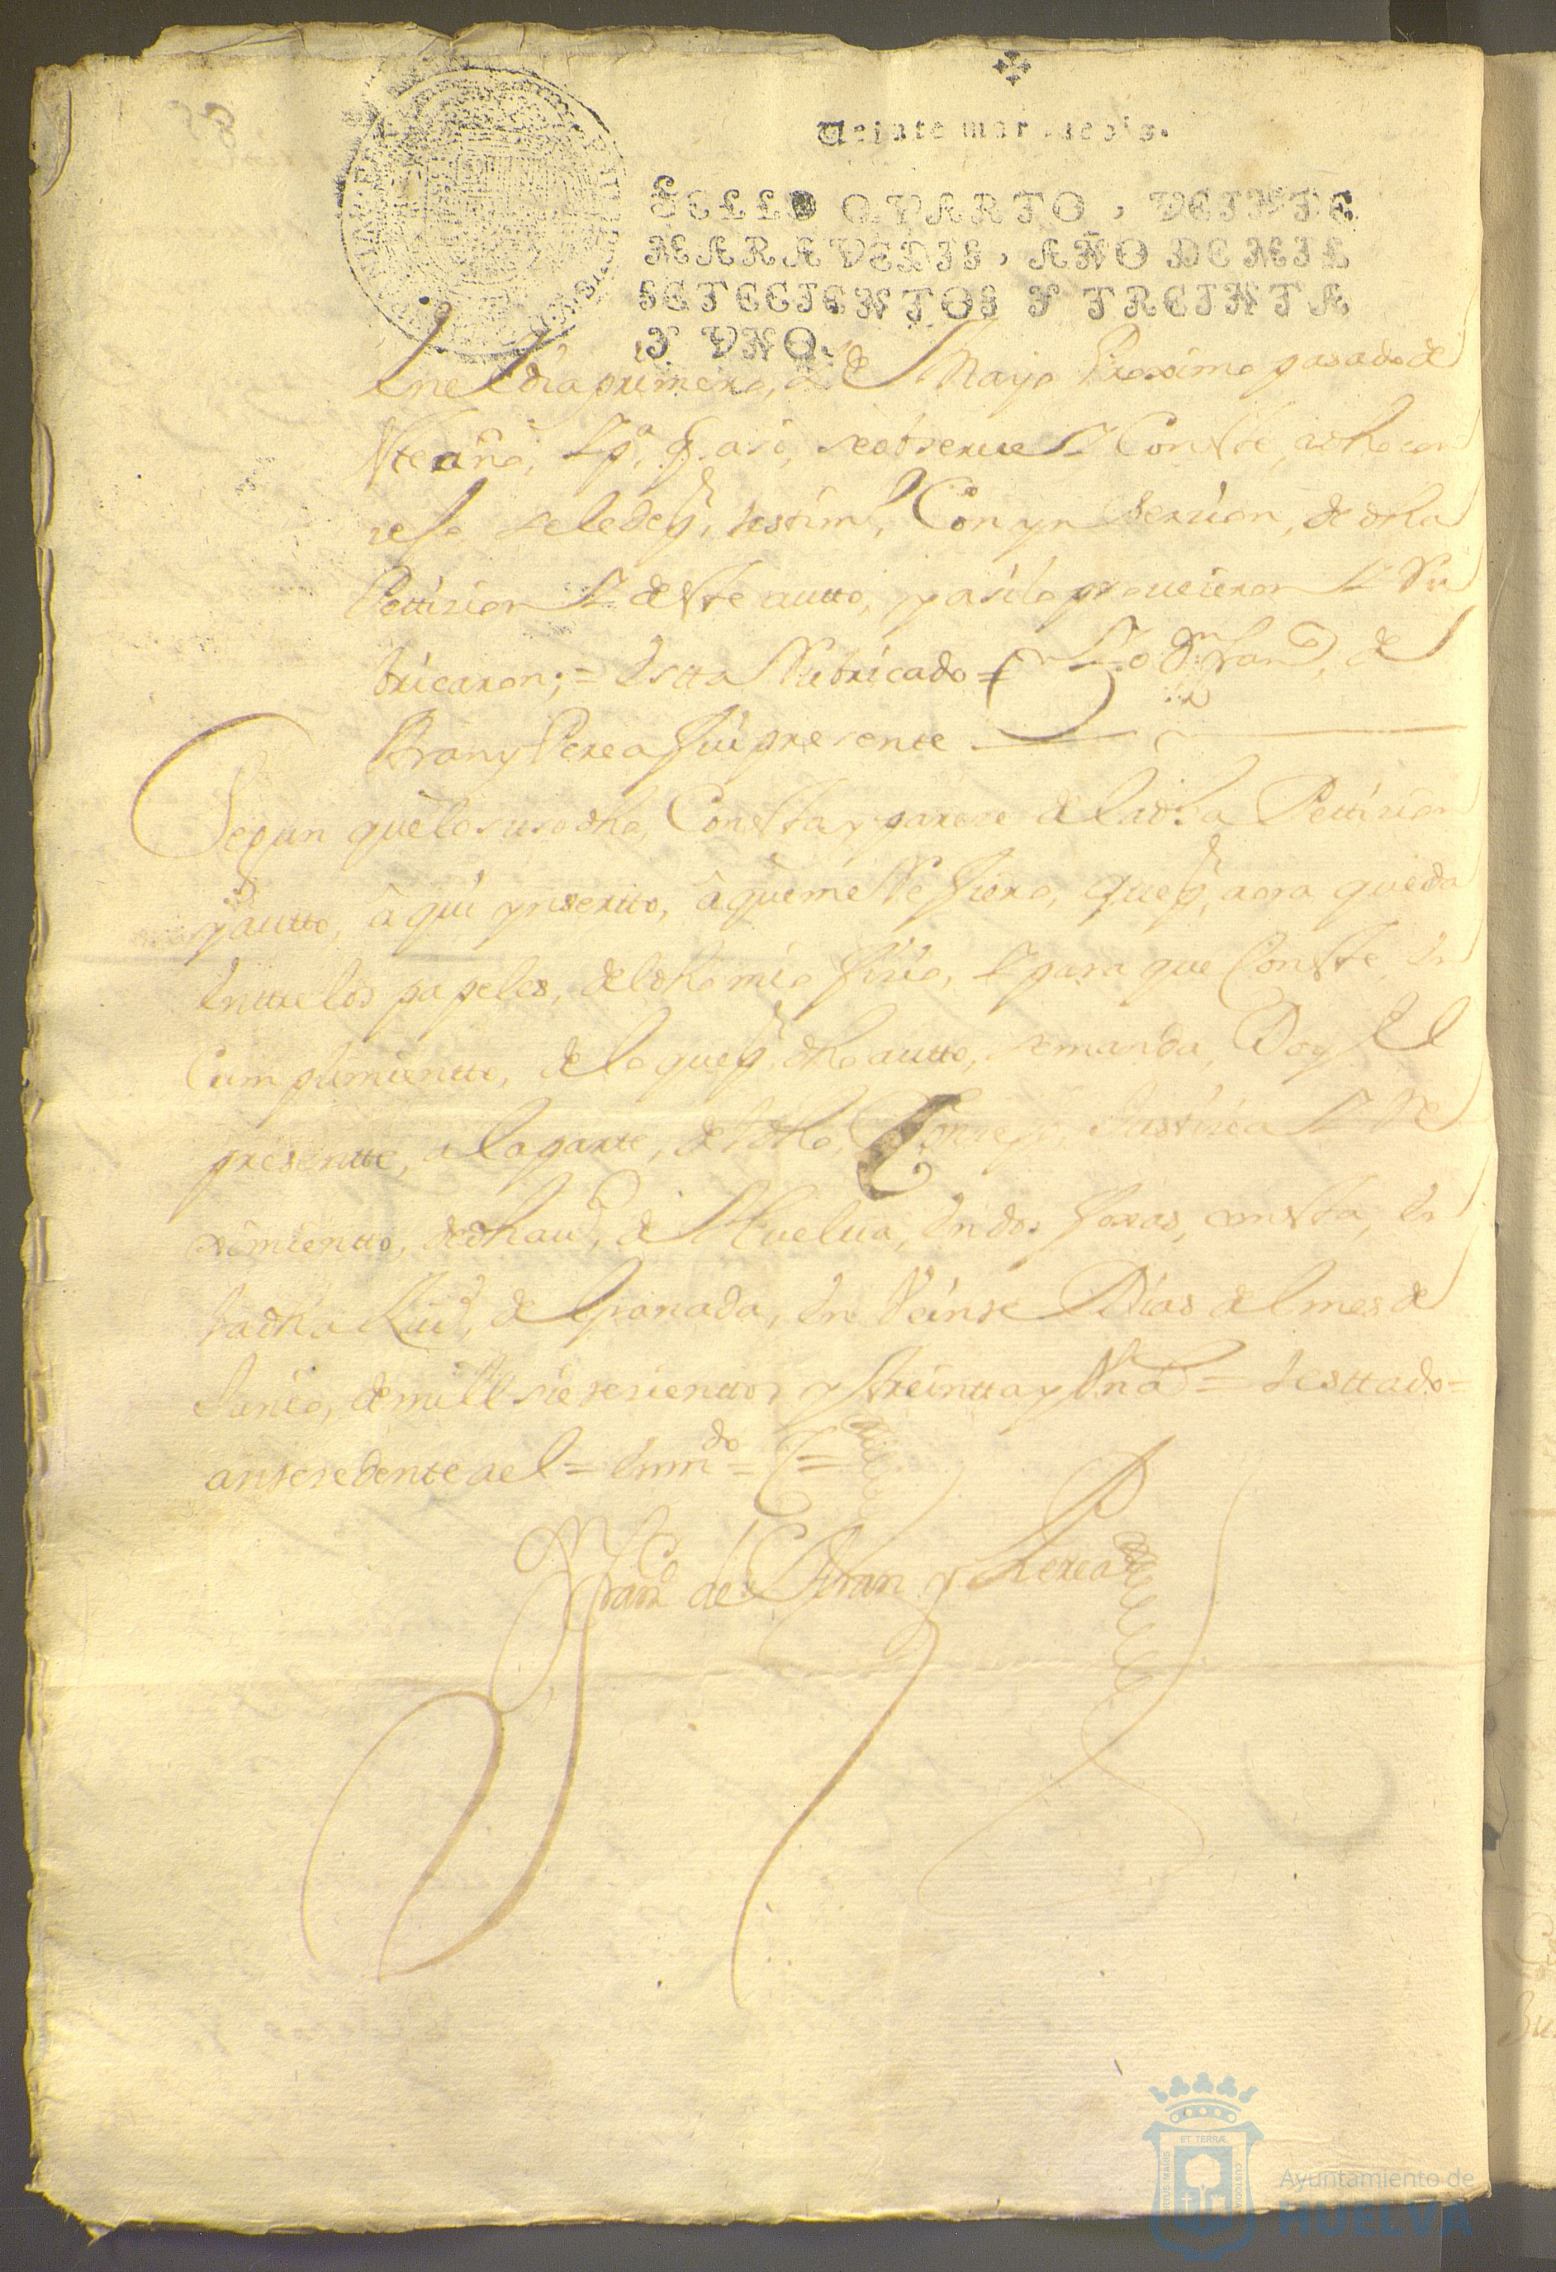 Veinte marauedis.
SELLO QVARTO, VEINTE
MARAVEDIS, AÑO DE MIL
SETECIENTOS Y TREINTA
Y VNO.
en el dia primero, de Mayo Proximo pasado de
este año, y pª. q. asi, se obserue y Conste, a dho con
sejo se le de p. testim.º, Con ynserzion, de dha
Pettizion y deste autto, y asi lo proueieron y Ru
bricaron; = estta Rubricado = Yo Dn. Franco. de
Biran y Perea fui presente
Segun que lo susodho, Consta y pareze de la dha Pettizion
y autto, aqui ynsertto, a que me Refiero, que p. aora queda
enttre los papeles, del dho mio ofizio, y para que Conste en
Cumplimientto, de lo que p. dho autto, se manda, Doy el
presentte, a la parte, del dho, Conzejo, Justizia y Re
ximientto, de dha uª, de Huelua, en dos foxas, con esta, en
la dha Ziud, de Granada, en Veinte Dias del mes de
Junio, de mill settezienttos y treintta y Un aº = testtado =
antezedente ael = enmdo =
Franco. de Biran y Perea
ET TERRÆ
PORTUS MARIS
CUSTODIA
Ayuntamiento de
HUELVA